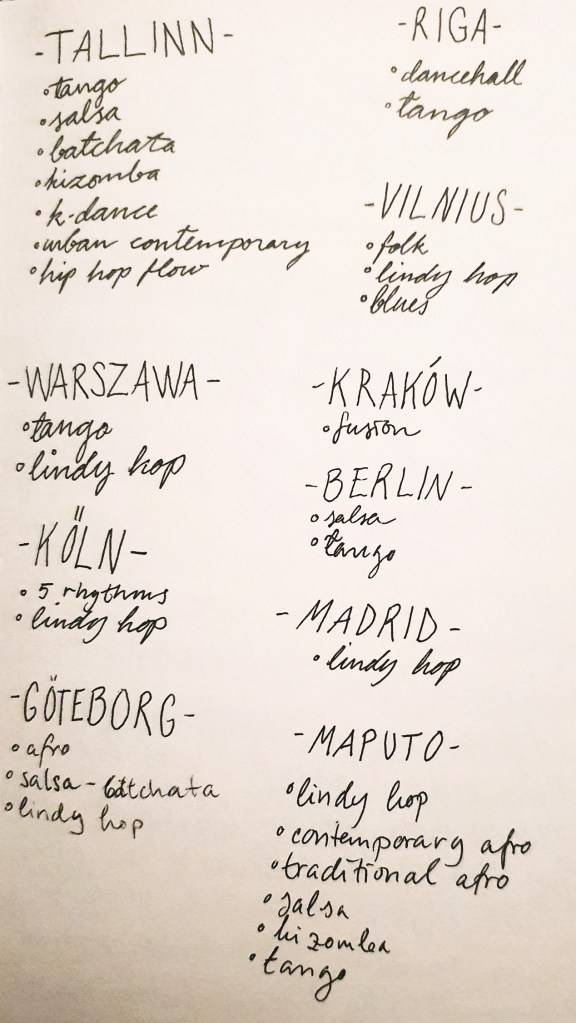 -TALLINN-
•tango
•salsa
•batchata
•kizomba
•k-dance
•urban contemporary
•hip hop flow
-RIGA-
•dancehall
•tango
-VILNIUS-
•folk
•lindy hop
•blues
-WARSZAWA-
•tango
•lindy hop
-KRAKÓW-
•fusion
-BERLIN-
•salsa
•tango
-KÖLN-
•5 rhythms
•lindy hop
-MADRID-
•lindy hop
-GÖTEBORG-
•afro
•salsa-batchata
•lindy hop
-MAPUTO-
•lindy hop
•contemporary afro
•traditional afro
•salsa
•kizomba
•tango